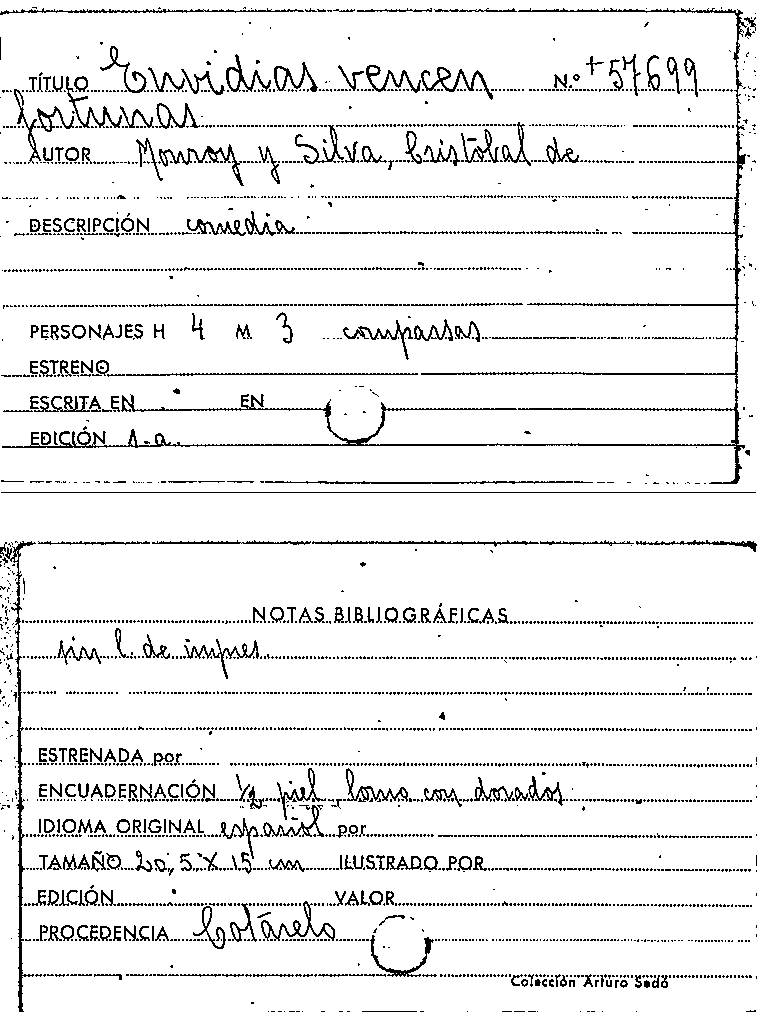 TÍTULO Envidias vencen N.º +57699
fortunas
AUTOR Monroy y Silva, Cristobal de
DESCRIPCIÓN comedia
PERSONAJES H 4 M 3 comparsas
ESTRENO
ESCRITA EN EN
EDICIÓN 1.a.
NOTAS BIBLIOGRÁFICAS
sin l. de impres.
ESTRENADA por
ENCUADERNACIÓN 1/2 piel, lomo con dorados
IDIOMA ORIGINAL español por
TAMAÑO 20,5 X 15 cm ILUSTRADO POR
EDICIÓN VALOR
PROCEDENCIA Cotárelo
Colección Arturo Sedó